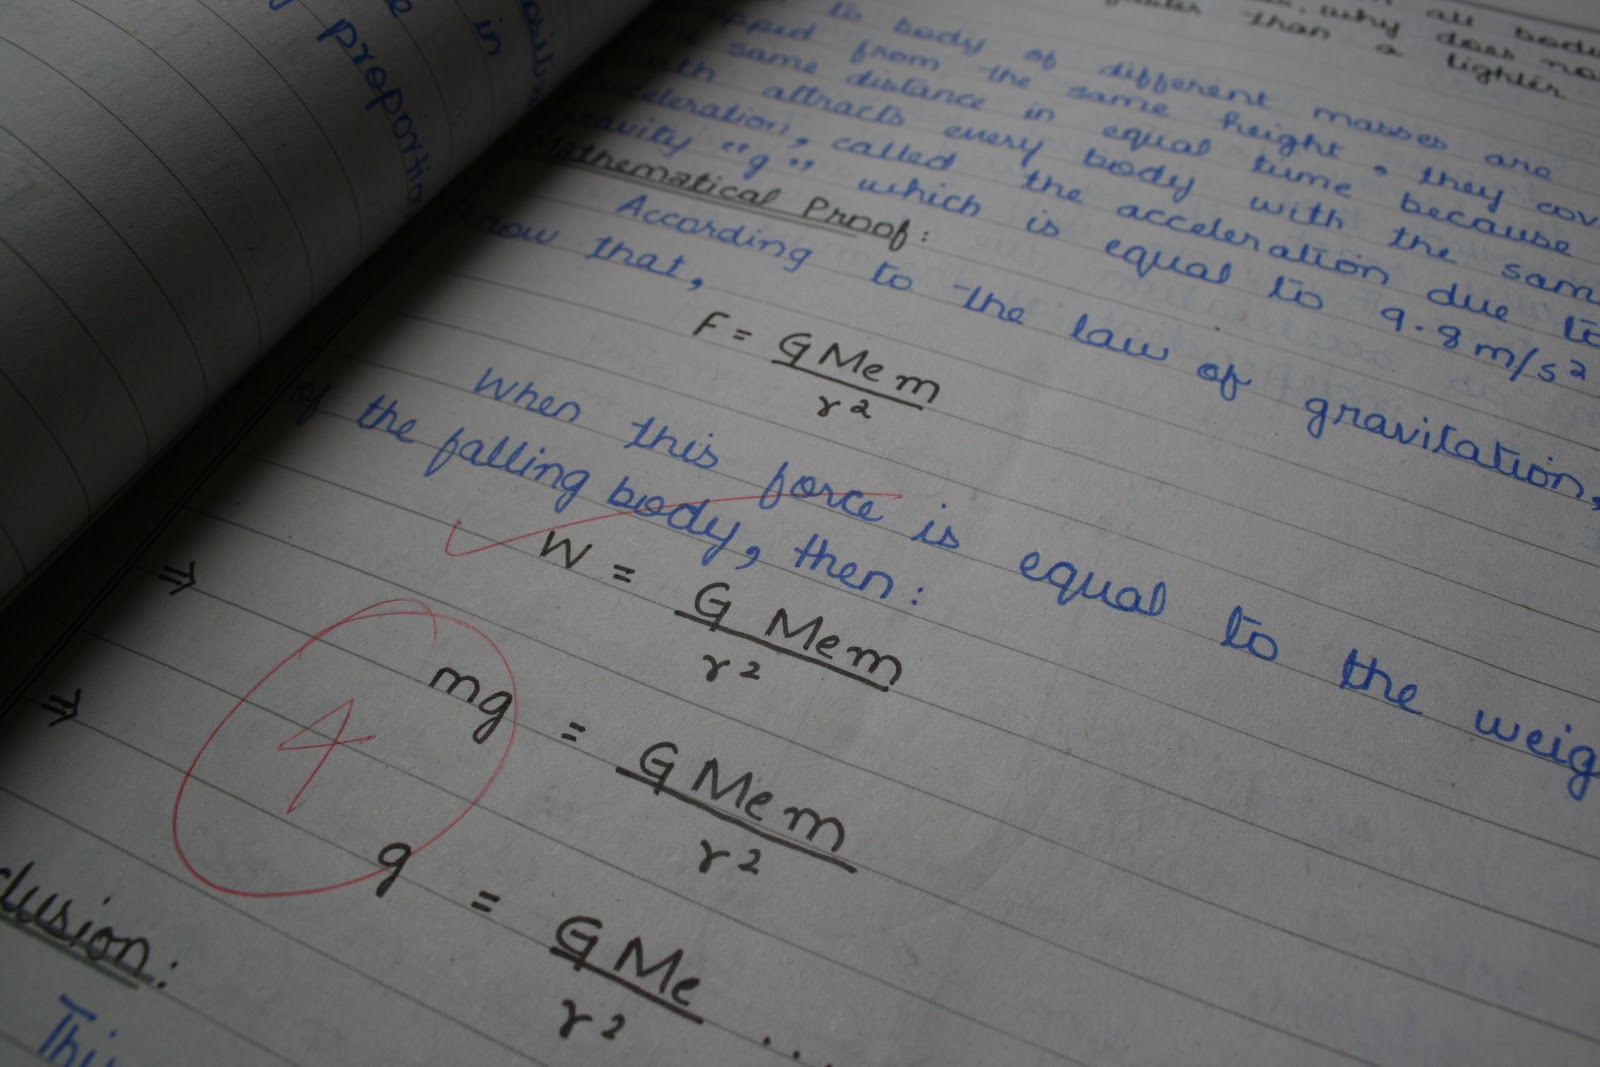 in
proportio
all bodi
, why does no
than a lighter
to body of different masses are
pped from the same height, they cov
same distance in equal time because
rth attracts every body with the sam
celeration, called the acceleration due to
gravity "g" which is equal to 9.8 m/s²
Mathematical Proof:
According to the law of gravitation,
know that,
F = G Me m / r²
When this force is equal to the weig
of the falling body, then:
W = G Me m / r²
⇒ mg = G Me m / r²
4
⇒ g = G Me / r² ...
clusion:
Thi